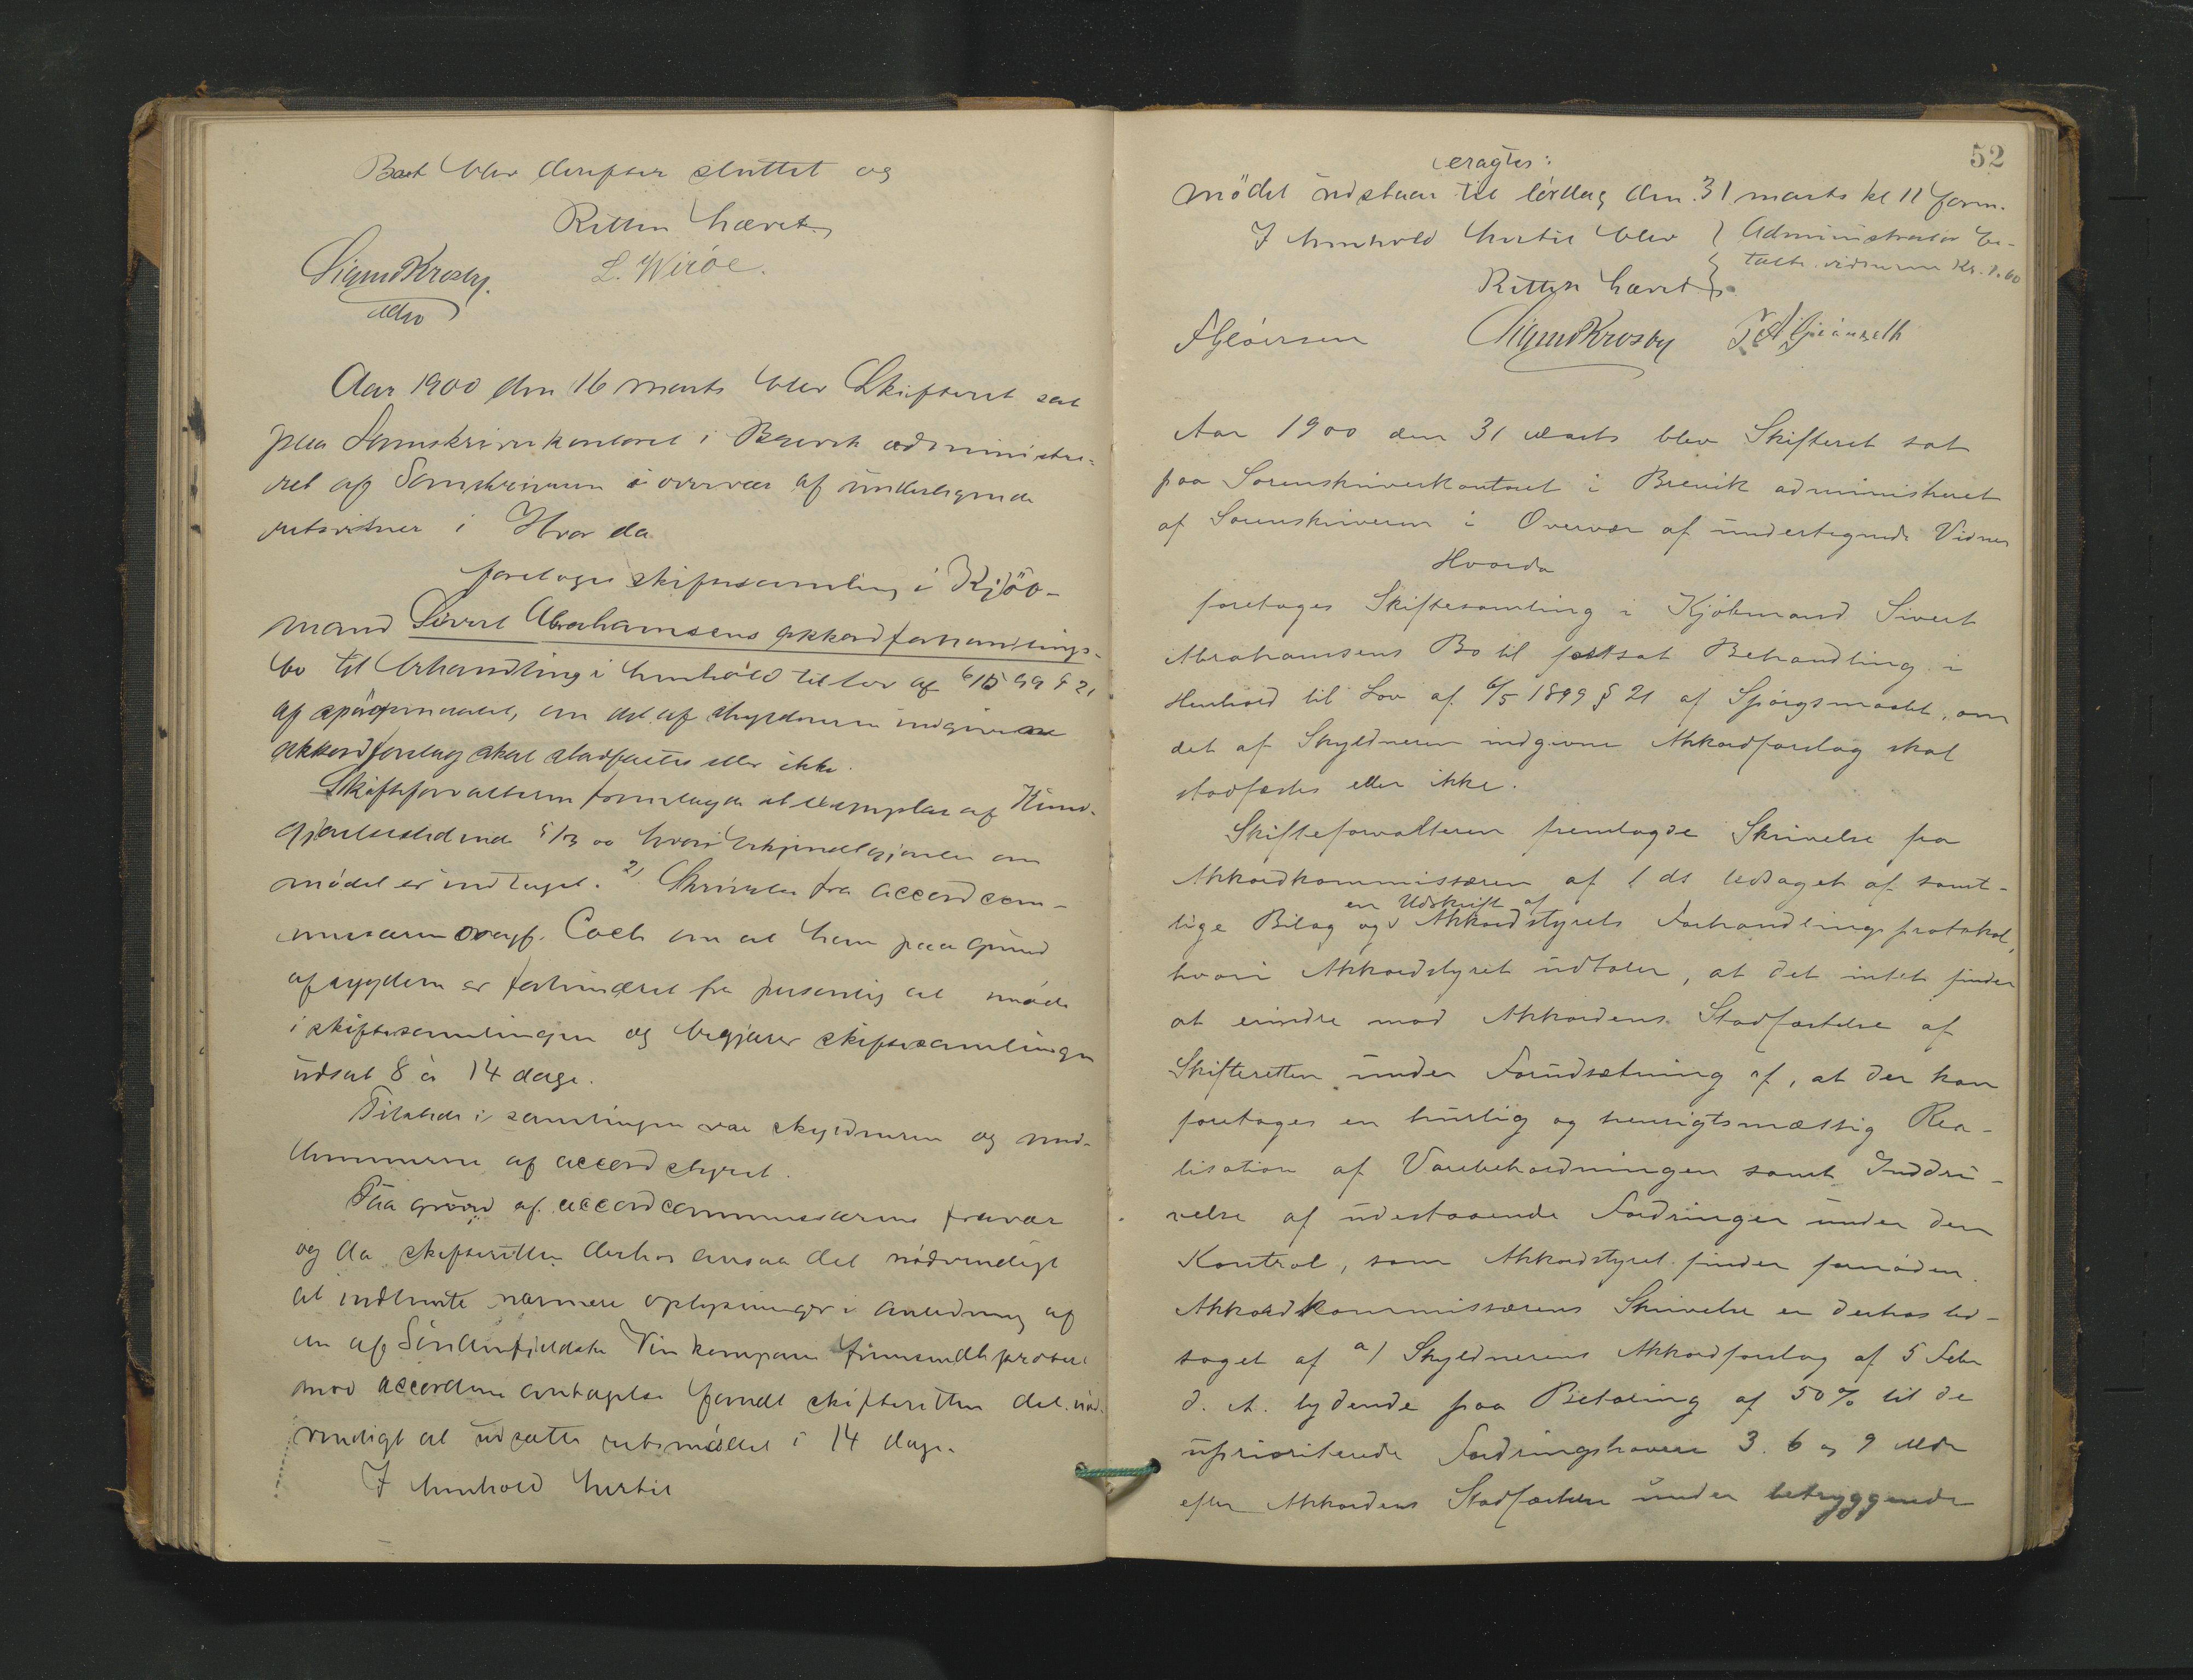 Boet blev derefter sluttet og
Retten hævet
Sigurd Krosby. L. Wirøe.
Aar 1900 den 16 marts blev Skifteret sat
paa Sorenskriverkontoret i Brevik administre-
ret af Sorenskriveren i overvær af undertegnede
retsvitner i Hvor da
foretoges skiftesamling i Kjöb-
mand Sivert Abrahamsens akkordforhandlings-
bo til behandling i henhold til lov af 6/5 99 § 21
af spørgsmaalet, om det af skyldneren indgivne
akkordforslag skal stadfæstes eller ikke.
Skifteforvalteren fremlagde et exemplar af Kund-
gjørelsestidende 5/3 00 hvori bekjendtgjørelse om
mødet er indtaget. 2) Skrivelse fra accordcom-
missæren ovrsf. Coch om at han paa grund
af sygdom er forhindret fra personlig at møde
i skiftesamlingen og begjærer skiftesamlingen
udsat 8 à 14 dage.
Tilstede i samlingen var skyldneren og med-
lemmerne af accordstyret.
Paa grund af accordcommissærens fravær
og da skifteretten derhos ansaa det nødvendigt
at indhente nærmere oplysninger i anledning af
en af Söndenfjeldske Vinkompani fremsendt protest
mod accordens antagelse fandt skifteretten det nød-
vendigt at udsætte retsmødet i 14 dage.
I henhold hertil
52
eragtes:
mödet udstaar til lördag den 31 marts kl 11 form.
I henhold hertil blev } Administrator be-
Retten hævet } talte vidnerne Kr. 1.60
Sigurd Krosby
Aar 1900 den 31 marts blev Skifteret sat
paa Sorenskriverkontoret i Brevik administreret
af Sorenskriveren i Overvær af undertegnede Vidner
Hvorda
foretoges Skiftesamling i Kjøbmand Sivert
Abrahamsens Bo til fortsat Behandling i
Henhold til Lov af 6/5 1899 § 21 af Spørgsmaalet, om
det af Skyldneren indgivne Akkordforslag skal
stadfæstes eller ikke.
Skifteforvalteren fremlagde Skrivelse fra
Akkordkommissæren af 1 ds ledsaget af samt-
en Udskrift af
lige Bilag og Akkordstyrets Forhandlingsprotokol,
hvori Akkordstyret udtaler, at det intet finder
at erindre mod Akkordens Stadfæstelse af
Skifteretten under Forudsætning af, at der kan
foretages en hurtig og hensigtsmæssig Rea-
lisation af Varebeholdningen samt Inddri-
velse af udestaaende Fordringer under den
Kontrol, som Akkordstyret finder fornøden.
Akkordkommissærens Skrivelse er derhos led-
saget af a) Skyldnerens Akkordforslag af 5 Febr
d. A. lydende paa Betaling af 50% til de
uprioriterede Fordringshavere 3. 6 og 9 Mdr
efter Akkordens Stadfæstelse under betryggende